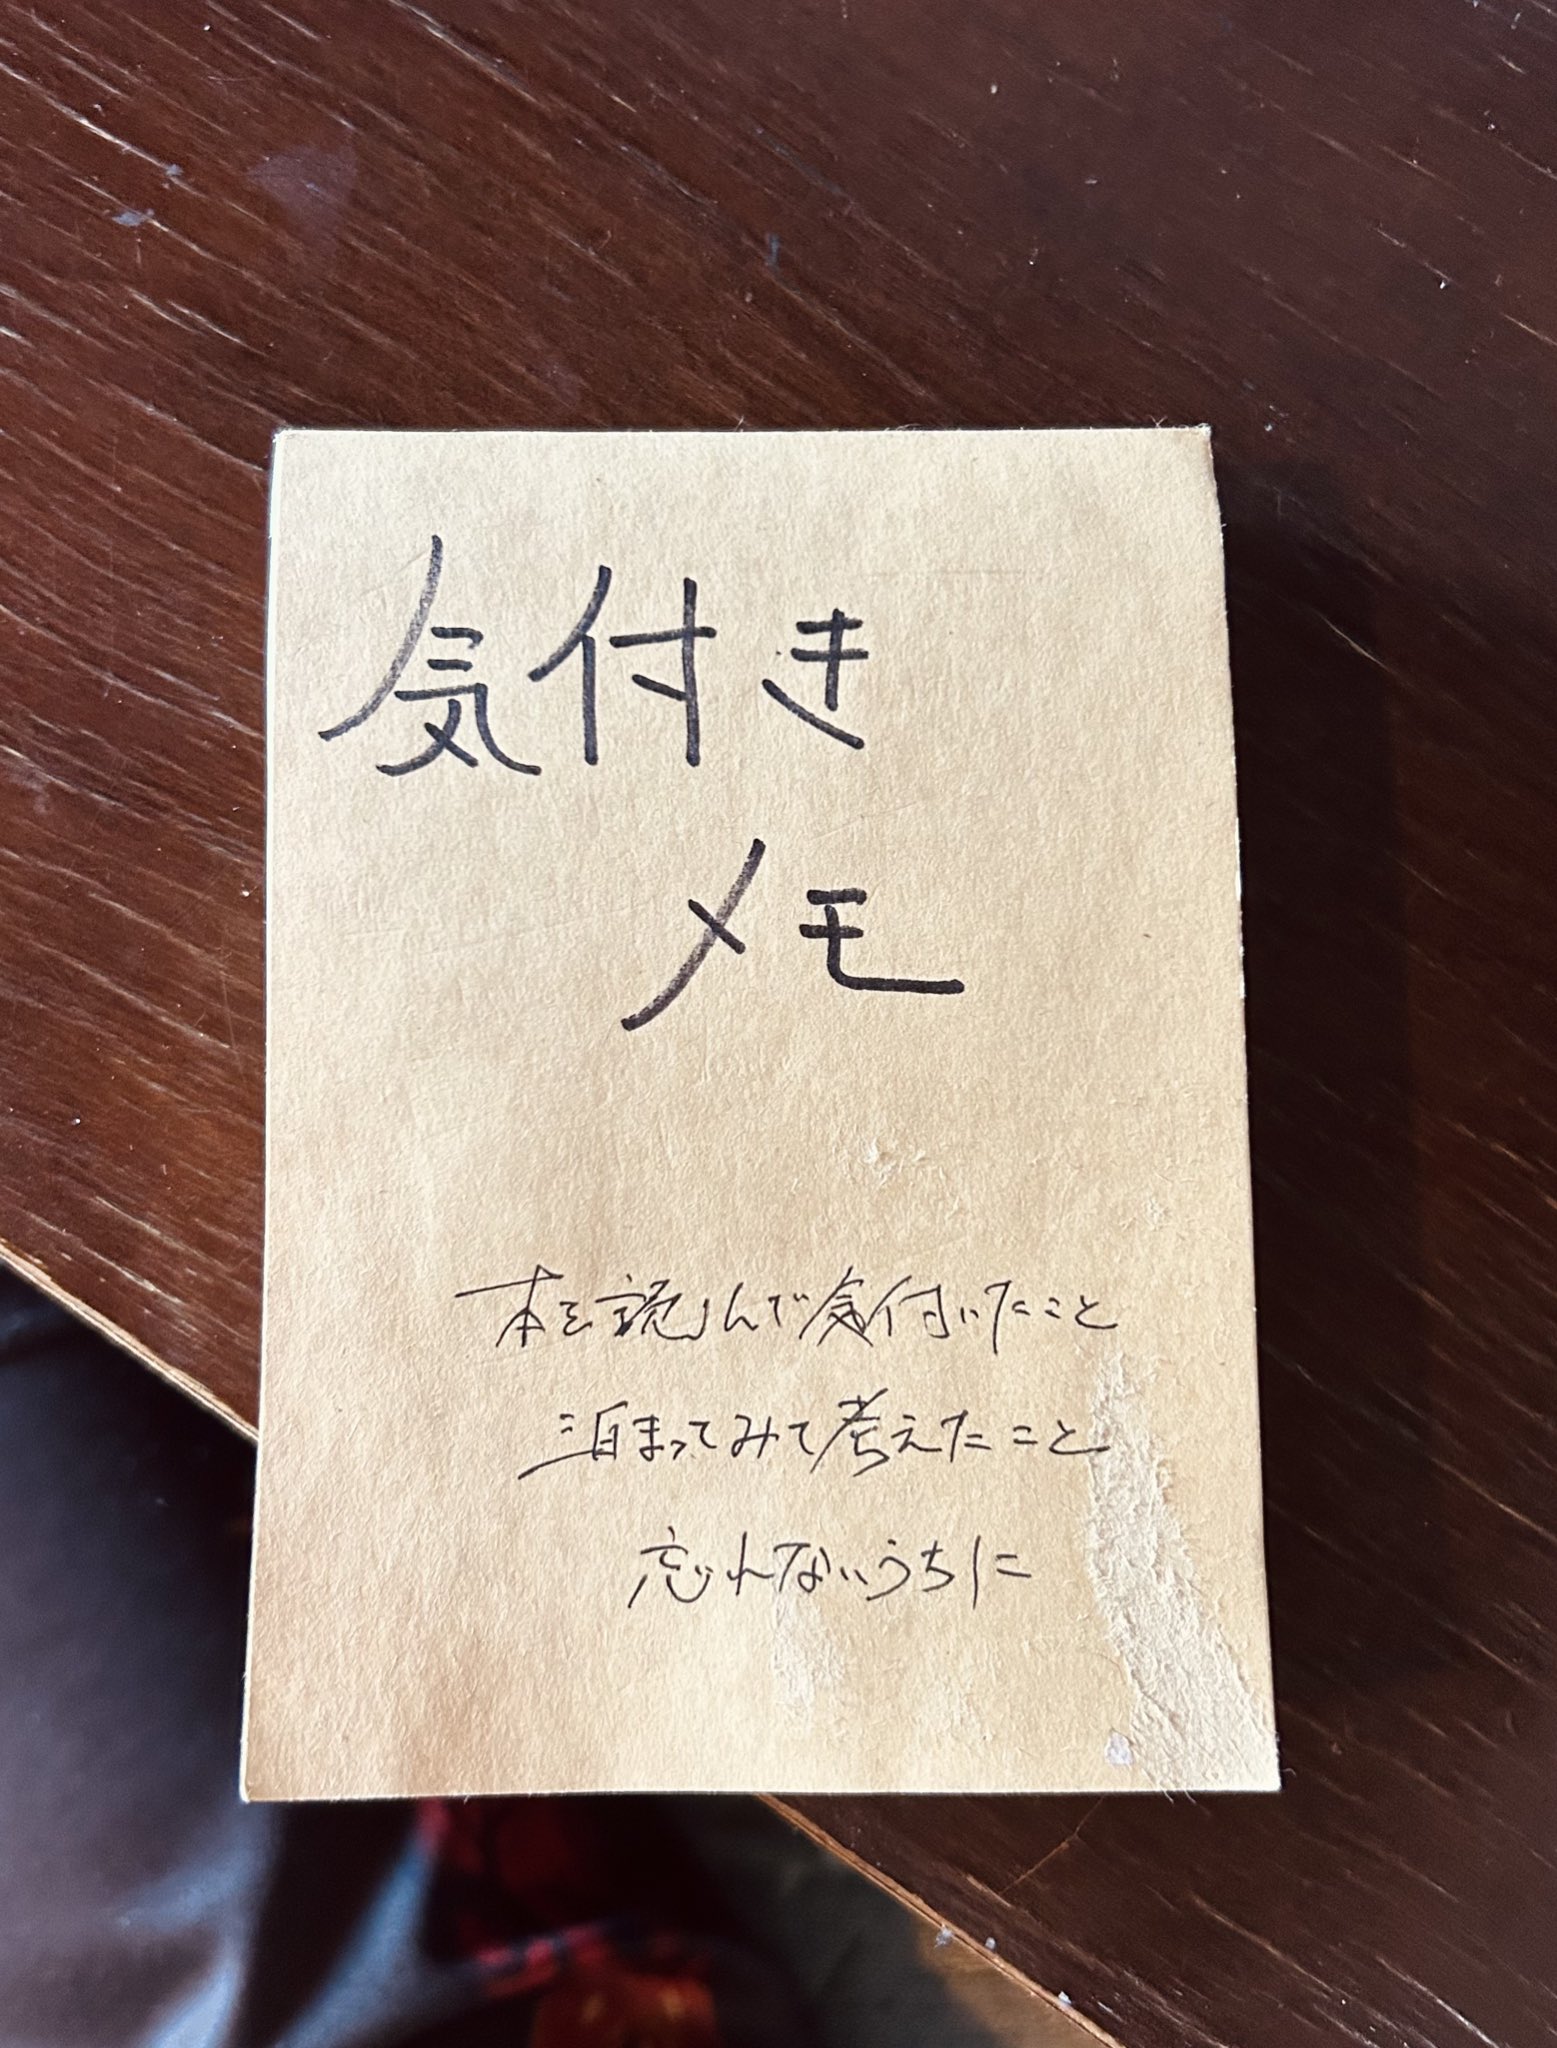 気付き
メモ
本を読んで気付いたこと
泊まってみて考えたこと
忘れないうちに